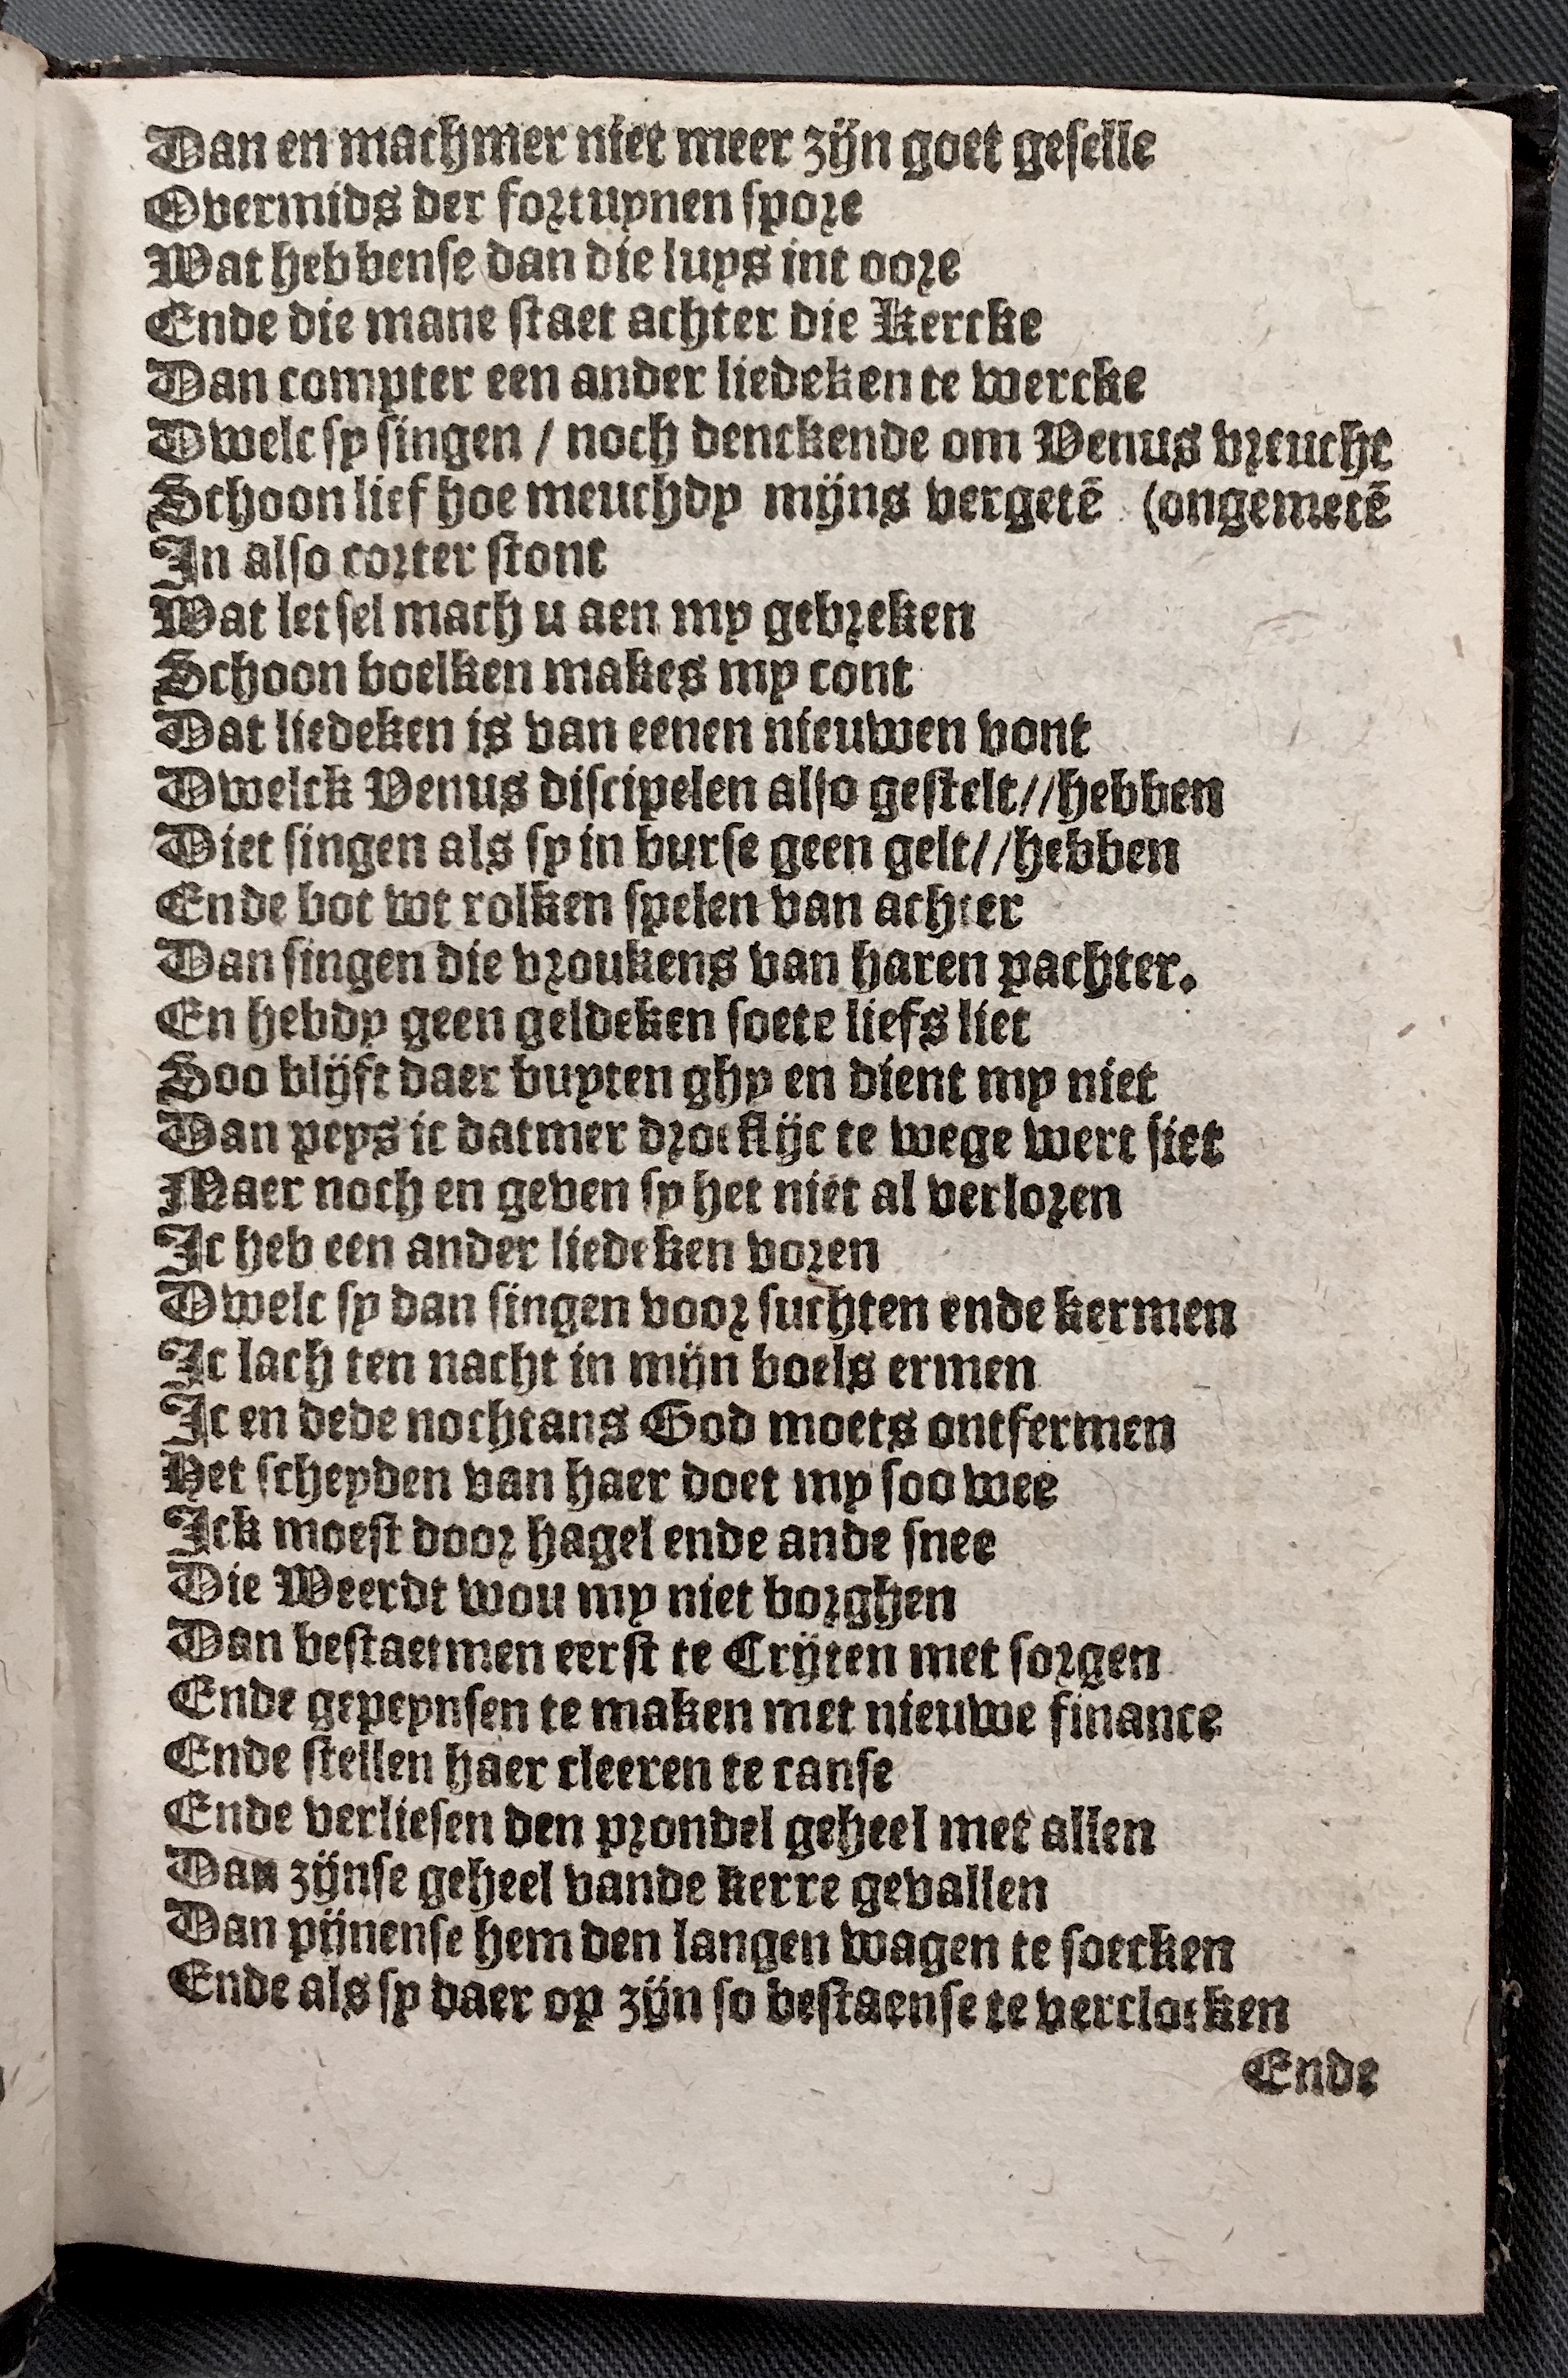 Dan en machmer niet meer zijn goet geselle
Overmids der fortuynen spore
Wat hebbense dan die luys int oore
Ende die mane staet achter die Kercke
Dan compter een ander liedeken te wercke
Dwelc sy singen / noch denckende om Venus vreucht
Schoon lief hoe meuchdy mijns vergetē (ongemetē
In also corter stont
Wat letsel mach u aen my gebreken
Schoon boelken makes my cont
Dat liedeken is van eenen nieuwen vont
Dwelck Venus discipelen also gestelt//hebben
Diet singen als sy in burse geen gelt//hebben
Ende bot wt rolken spelen van achter
Dan singen die vroukens van haren pachter.
En hebdy geen geldeken soete liefs liet
Soo blijft daer buyten ghy en dient my niet
Dan peys ic datmer droeflijc te wege wert siet
Maer noch en geven sy het niet al verloren
Ic heb een ander liedeken voren
Dwelc sy dan singen voor suchten ende kermen
Ic lach ten nacht in mijn boels ermen
Ic en dede nochtans God moets ontfermen
Het scheyden van haer doet my soo wee
Ick moest door hagel ende ande snee
Die Weerdt wou my niet borghen
Dan bestaetmen eerst te Crijten met sorgen
Ende gepeynsen te maken met nieuwe finance
Ende stellen haer cleeren te canse
Ende verliesen den prondel geheel met allen
Dan zijnse geheel vande kerre gevallen
Dan pijnense hem den langen wagen te soecken
Ende als sy daer op zijn so bestaense te vercloecken
Ende